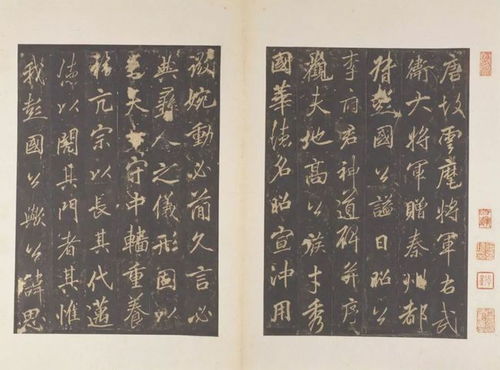 唐故雲麾將軍右武
衛大將軍贈秦州都
督彭國公謚曰昭公
李府君神道碑并序
觀夫地高公族才秀
國華德名昭宣沖用
微婉動必簡久言必
典彝人之儀形固以
夫守中輜重養
福亢宗以長其代邁
德以閥其門者其惟
我彭國公歟公諱思